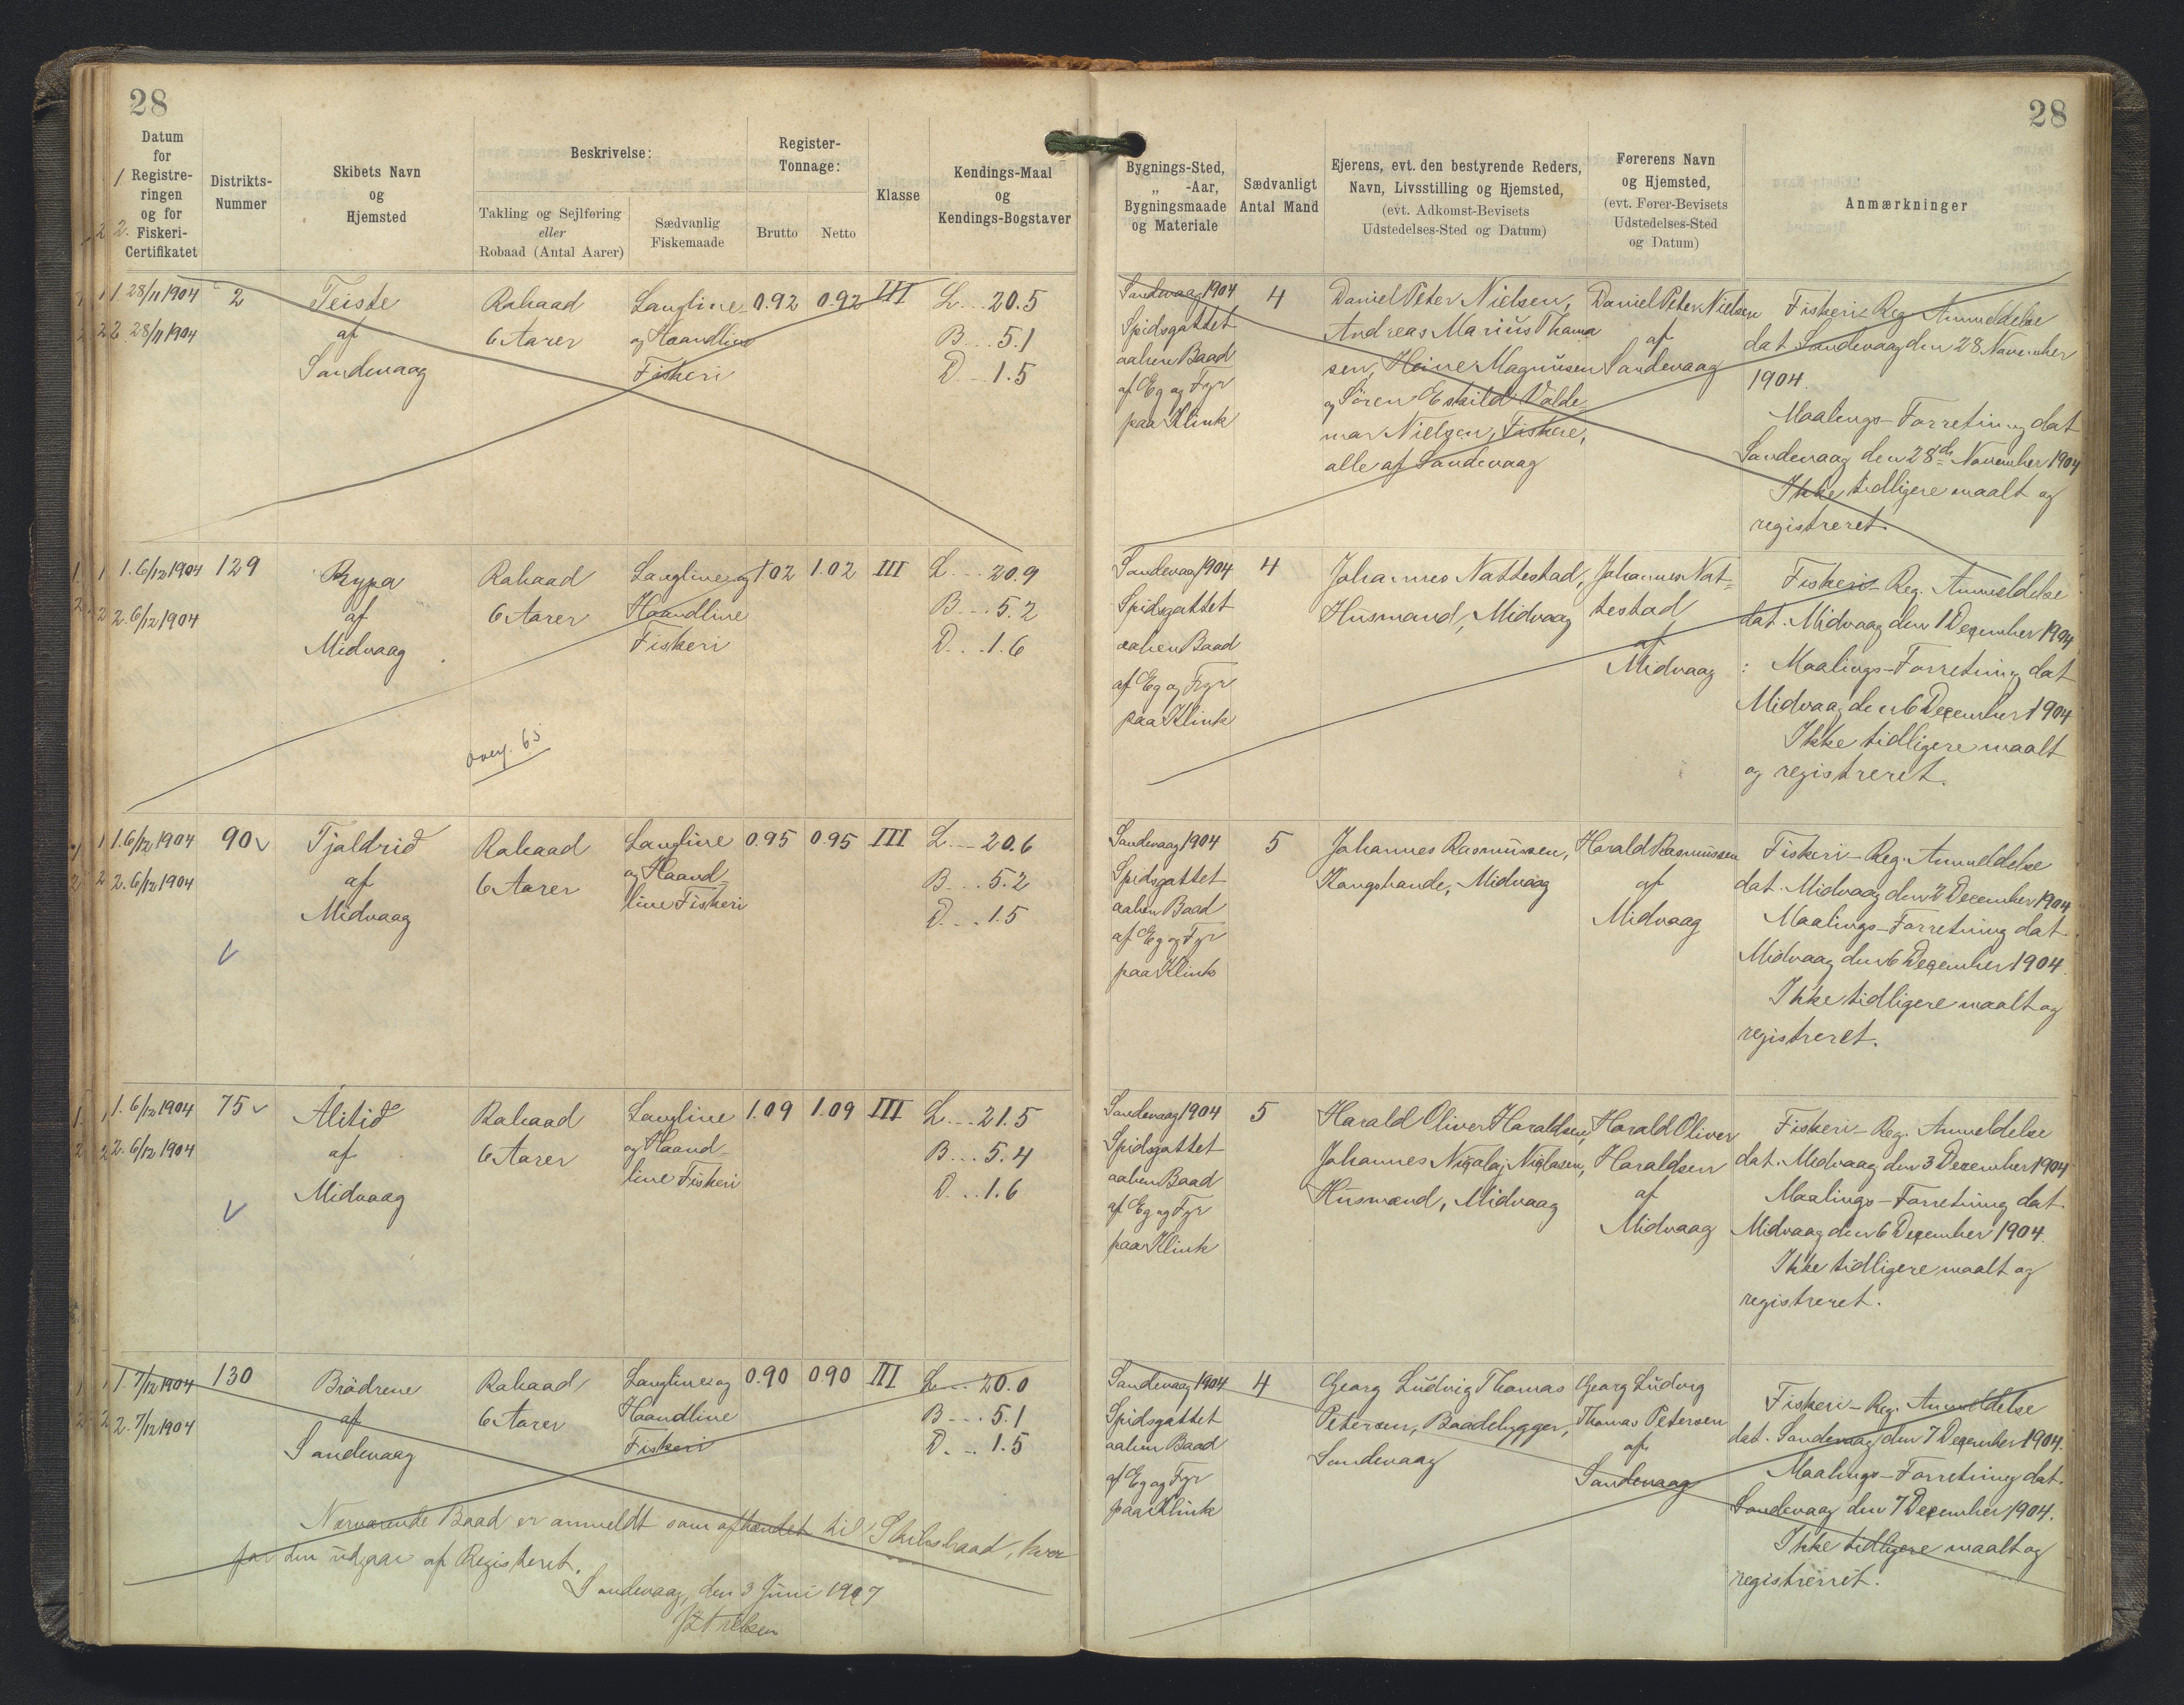 28
28
Datum
for
1. Registre-
ringen
og for
2. Fiskeri-
Certifikatet
Distrikts-
Nummer
Skibets Navn
og
Hjemsted
Beskrivelse:
Takling og Sejlføring
eller
Robaad (Antal Aarer)
Sædvanlig
Fiskemaade
Register-
Tonnage:
Brutto
Netto
Klasse
Kendings-Maal
og
Kendings-Bogstaver
Bygnings-Sted,
„ -Aar,
Bygningsmaade
og Materiale
Sædvanligt
Antal Mand
Ejerens, evt. den bestyrende Reders,
Navn, Livsstilling og Hjemsted,
(evt. Adkomst-Bevisets
Udstedelses-Sted og Datum)
Førerens Navn
og Hjemsted,
(evt. Fører-Bevisets
Udstedelses-Sted
og Datum)
Anmærkninger
1 28/11 1904
2 28/11 1904
2
Teiste
af
Sandevaag
Robaad
6 Aarer
Langline-
og Haandline
Fiskeri
0.92
0.92
III
L... 20.5
B... 5.1
D... 1.5
Sandevaag 1904
Spidsgattet
aaben Baad
af Eg og Fyr
paa Klink
4
Daniel Peter Nielsen,
Andreas Marius Thoma
sen, Heine Magnusen
og Sören Eskild Valde-
mar Nielsen, Fiskere,
alle af Sandevaag
Daniel Peter Nielsen
af
Sandevaag
Fiskeri-Reg. Anmeldelse
dat. Sandevaag den 28 November
1904.
Maalings-Forretning dat
Sandevaag den 28de November 1904
Ikke tidligere maalt og
registreret.
1. 6/12 1904
2. 6/12 1904
129
Rypa
af
Midvaag
Robaad
6 Aarer
Langline og
Haandline
Fiskeri
1.02
1.02
III
L... 20.9
B... 5.2
D... 1.6
Sandevaag 1904
Spidsgattet
aaben Baad
af Eg og Fyr
paa Klink
4
Johannes Nattestad,
Husmand, Midvaag
Johannes Nat-
testad
af
Midvaag
Fiskeri-Reg. Anmeldelse
dat. Midvaag den 1 December 1904
Maalings-Forretning dat
Midvaag den 6 December 1904
Ikke tidligere maalt
og registreret.
1. 6/12 1904
2. 6/12 1904
90
Tjaldrið
af
Midvaag
Robaad
6 Aarer
Langline
og Haand-
line Fiskeri
0.95
0.95
III
L... 20.6
B... 5.2
D... 1.5
Sandevaag 1904
Spidsgattet
aaben Baad
af Eg og Fyr
paa Klink
5
Johannes Rasmussen,
Kongsbonde, Midvaag
Harald Rasmussen
af
Midvaag
Fiskeri-Reg. Anmeldelse
dat. Midvaag den 2 December 1904
Maalings-Forretning dat.
Midvaag den 6 December 1904.
Ikke tidligere maalt og
registreret.
1. 6/12 1904
2. 6/12 1904
75
Álitið
af
Midvaag
Robaad
6 Aarer
Langline
og Haand-
line Fiskeri
1.09
1.09
III
L... 21.5
B... 5.4
D... 1.6
Sandevaag 1904
Spidsgattet
aaben Baad
af Eg og Fyr
paa Klink
5
Harald Oliver Haraldsen,
Johannes Nicolaj Niclasen,
Husmænd, Midvaag
Harald Oliver
Haraldsen
af
Midvaag
Fiskeri-Reg. Anmeldelse
dat. Midvaag den 3 December 1904
Maalings-Forretning dat
Midvaag den 6 December 1904.
Ikke tidligere maalt og
registreret.
1. 7/12 1904
2. 7/12 1904
130
Brödrene
af
Sandevaag
Robaad
6 Aarer
Langline og
Haandline
Fiskeri
0.90
0.90
III
L... 20.0
B... 5.1
D... 1.5
Nærværende Baad er anmeldt som afhændet til Skibsbaad, hvor
for den udgaar af Registeret.
Sandevaag, den 3 Juni 1907
Sandevaag 1904
Spidsgattet
aaben Baad
af Eg og Fyr
paa Klink
4
Georg Ludvig Thomas
Petersen, Baadebygger,
Sandevaag
Georg Ludvig
Thomas Petersen
af
Sandevaag
Fiskeri-Reg. Anmeldelse
dat. Sandevaag den 7 December 1904.
Maalings-Forretning dat.
Sandevaag den 7 December 1904.
Ikke tidligere maalt og
registrerit.